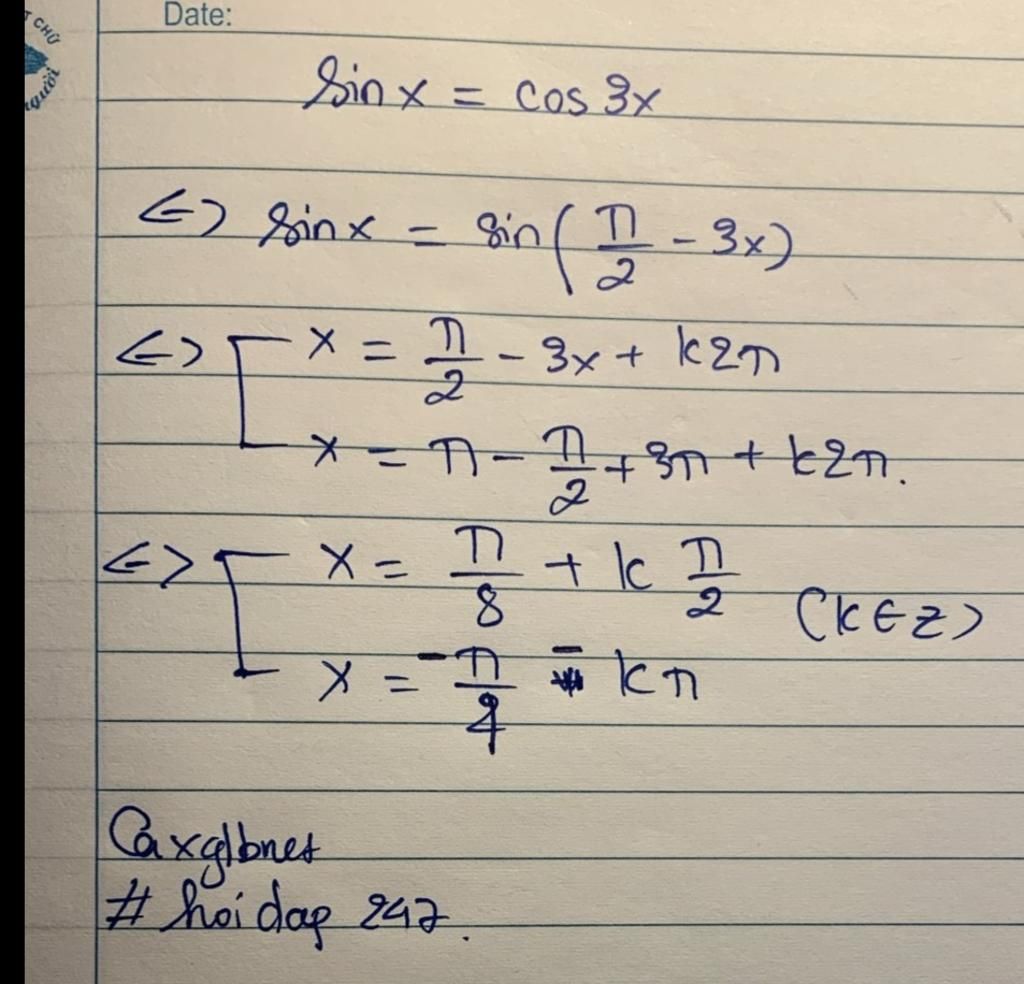 T CHỮ
người
Date:
sin x = cos 3x
<=> sin x = sin( π/2 - 3x)
<=> [ x = π/2 - 3x + k2π
x = π - π/2 + 3π + k2π.
<=> [ x = π/8 + k π/2 (k ∈ Z)
x = -π/4 - kπ
Caxglbnet
# hoidap 247.